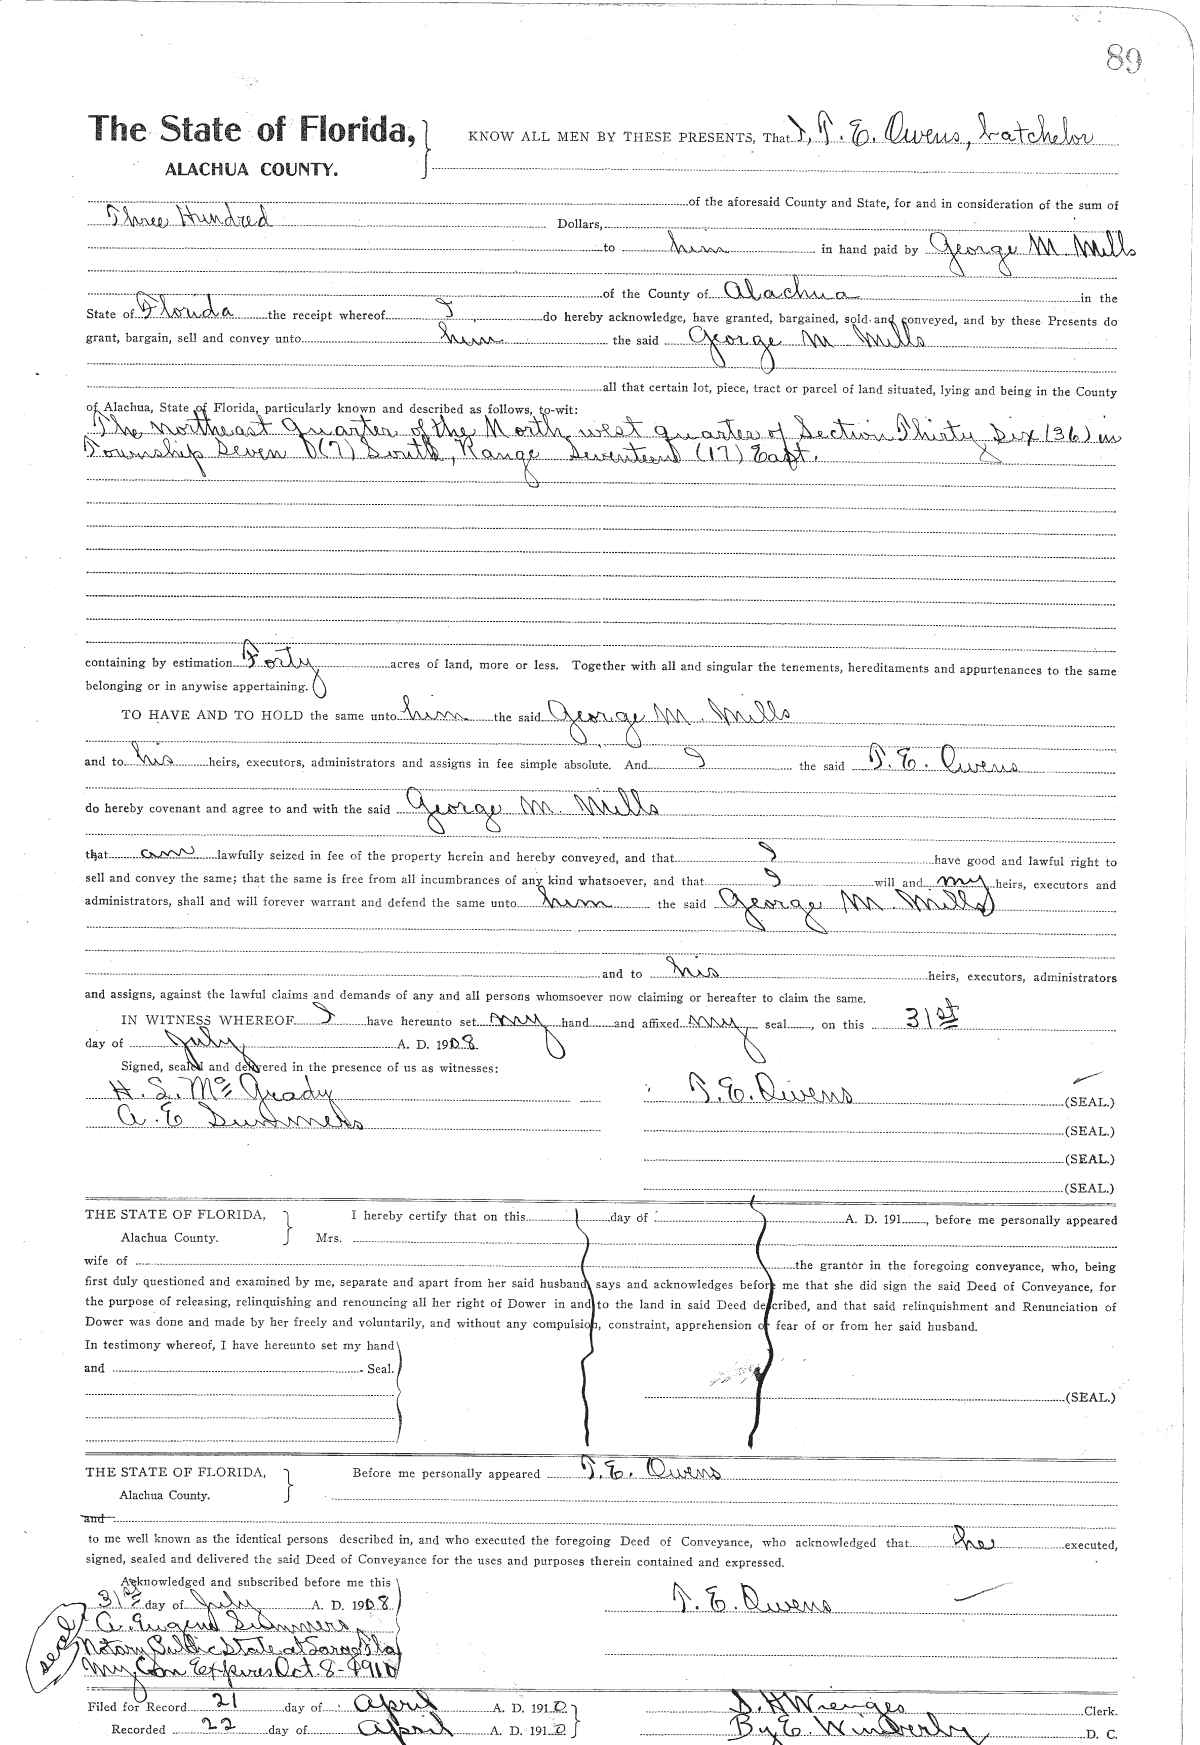 89
The State of Florida,
ALACHUA COUNTY.
KNOW ALL MEN BY THESE PRESENTS, That I, T. E. Owens, batchelor
of the aforesaid County and State, for and in consideration of the sum of
Three Hundred Dollars,
to him in hand paid by George M. Mills
of the County of Alachua in the
State of Florida the receipt whereof I do hereby acknowledge, have granted, bargained, sold and conveyed, and by these Presents do
grant, bargain, sell and convey unto him the said George M Mills
all that certain lot, piece, tract or parcel of land situated, lying and being in the County
of Alachua, State of Florida, particularly known and described as follows, to-wit:
The Northeast Quarter of the North west quarter of Section Thirty Six (36) in
Township Seven (7) South, Range Seventeen (17) East.
containing by estimation Forty acres of land, more or less. Together with all and singular the tenements, hereditaments and appurtenances to the same
belonging or in anywise appertaining.
TO HAVE AND TO HOLD the same unto him the said George M. Mills
and to his heirs, executors, administrators and assigns in fee simple absolute. And I the said T. E. Owens
do hereby covenant and agree to and with the said George M. Mills
that am lawfully seized in fee of the property herein and hereby conveyed, and that I have good and lawful right to
sell and convey the same; that the same is free from all incumbrances of any kind whatsoever, and that I will and my heirs, executors and
administrators, shall and will forever warrant and defend the same unto him the said George M Mills
and to his heirs, executors, administrators
and assigns, against the lawful claims and demands of any and all persons whomsoever now claiming or hereafter to claim the same.
IN WITNESS WHEREOF I have hereunto set my hand and affixed my seal, on this 31st
day of July A. D. 1908.
Signed, sealed and delivered in the presence of us as witnesses:
H. S. McGrady T. E. Owens (SEAL.)
A. E Summers (SEAL.)
(SEAL.)
(SEAL.)
THE STATE OF FLORIDA, I hereby certify that on this day of A. D. 191 , before me personally appeared
Alachua County. Mrs.
wife of the grantor in the foregoing conveyance, who, being
first duly questioned and examined by me, separate and apart from her said husband says and acknowledges before me that she did sign the said Deed of Conveyance, for
the purpose of releasing, relinquishing and renouncing all her right of Dower in and to the land in said Deed described, and that said relinquishment and Renunciation of
Dower was done and made by her freely and voluntarily, and without any compulsion, constraint, apprehension or fear of or from her said husband.
In testimony whereof, I have hereunto set my hand
and Seal.
(SEAL.)
THE STATE OF FLORIDA, Before me personally appeared T. E. Owens
Alachua County.
and
to me well known as the identical persons described in, and who executed the foregoing Deed of Conveyance, who acknowledged that he executed,
signed, sealed and delivered the said Deed of Conveyance for the uses and purposes therein contained and expressed.
Acknowledged and subscribed before me this
31st day of July A. D. 1908 T. E. Owens
seal A. Eugene Summers
Notary Public State at Large Fla
My Com Expires Oct. 8-1910
Filed for Record 21 day of April A. D. 1910 S. H Wienges Clerk.
Recorded 22 day of April A. D. 1910 By E. Wimberly D. C.